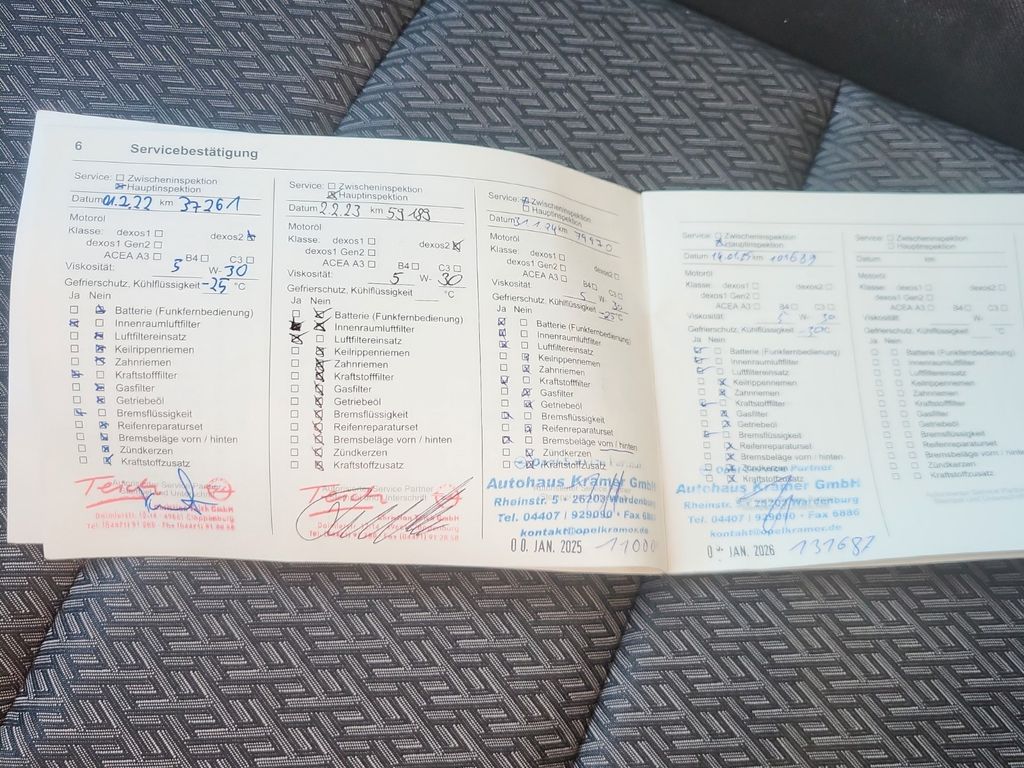 6 Servicebestätigung
Service: Zwischeninspektion
Hauptinspektion
Datum 01.2.22 km 37261
Motoröl
Klasse: dexos1 dexos2
dexos1 Gen2
ACEA A3 B4 C3
Viskosität: 5 W- 30
Gefrierschutz, Kühlflüssigkeit -25 °C
Ja Nein
Batterie (Funkfernbedienung)
Innenraumluftfilter
Luftfiltereinsatz
Keilrippenriemen
Zahnriemen
Kraftstofffilter
Gasfilter
Getriebeöl
Bremsflüssigkeit
Reifenreparaturset
Bremsbeläge vorn / hinten
Zündkerzen
Kraftstoffzusatz
Service: Zwischeninspektion
Hauptinspektion
Datum 2.2.23 km 59189
Motoröl
Klasse: dexos1 dexos2
dexos1 Gen2
ACEA A3 B4 C3
Viskosität: 5 W- 30
Gefrierschutz, Kühlflüssigkeit °C
Ja Nein
Batterie (Funkfernbedienung)
Innenraumluftfilter
Luftfiltereinsatz
Keilrippenriemen
Zahnriemen
Kraftstofffilter
Gasfilter
Getriebeöl
Bremsflüssigkeit
Reifenreparaturset
Bremsbeläge vorn / hinten
Zündkerzen
Kraftstoffzusatz
Service: Zwischeninspektion
Hauptinspektion
Datum 31.1.24 km 79970
Motoröl
Klasse: dexos1 dexos2
dexos1 Gen2
ACEA A3 B4 C3
Viskosität: 5 W- 30
Gefrierschutz, Kühlflüssigkeit -25°C
Ja Nein
Batterie (Funkfernbedienung)
Innenraumluftfilter
Luftfiltereinsatz
Keilrippenriemen
Zahnriemen
Kraftstofffilter
Gasfilter
Getriebeöl
Bremsflüssigkeit
Reifenreparaturset
Bremsbeläge vorn / hinten
Zündkerzen
Kraftstoffzusatz
Autohaus Krämer GmbH
Rheinstr. 5 - 26203 Wardenburg
Tel. 04407 / 929090 • Fax 6886
kontakt@opelkramer.de
JAN. 2025
Service: Zwischeninspektion
Hauptinspektion
Datum 14.01.25 km 101689
Motoröl
Klasse: dexos1 dexos2
dexos1 Gen2
ACEA A3 B4 C3
Viskosität: 5 W- 30
Gefrierschutz, Kühlflüssigkeit -30°C
Ja Nein
Batterie (Funkfernbedienung)
Innenraumluftfilter
Luftfiltereinsatz
Keilrippenriemen
Zahnriemen
Kraftstofffilter
Gasfilter
Getriebeöl
Bremsflüssigkeit
Reifenreparaturset
Bremsbeläge vorn / hinten
Zündkerzen
Kraftstoffzusatz
Autohaus Krämer GmbH
Rheinstr. 5 - 26203 Wardenburg
Tel. 04407 / 929090 • Fax 6886
kontakt@opelkramer.de
JAN. 2026 131687
Service: Zwischeninspektion
Hauptinspektion
Datum km
Motoröl
Klasse: dexos1 dexos2
dexos1 Gen2
ACEA A3 B4 C3
Viskosität: W-
Gefrierschutz, Kühlflüssigkeit °C
Ja Nein
Batterie (Funkfernbedienung)
Innenraumluftfilter
Luftfiltereinsatz
Keilrippenriemen
Zahnriemen
Kraftstofffilter
Gasfilter
Getriebeöl
Bremsflüssigkeit
Reifenreparaturset
Bremsbeläge vorn / hinten
Zündkerzen
Kraftstoffzusatz